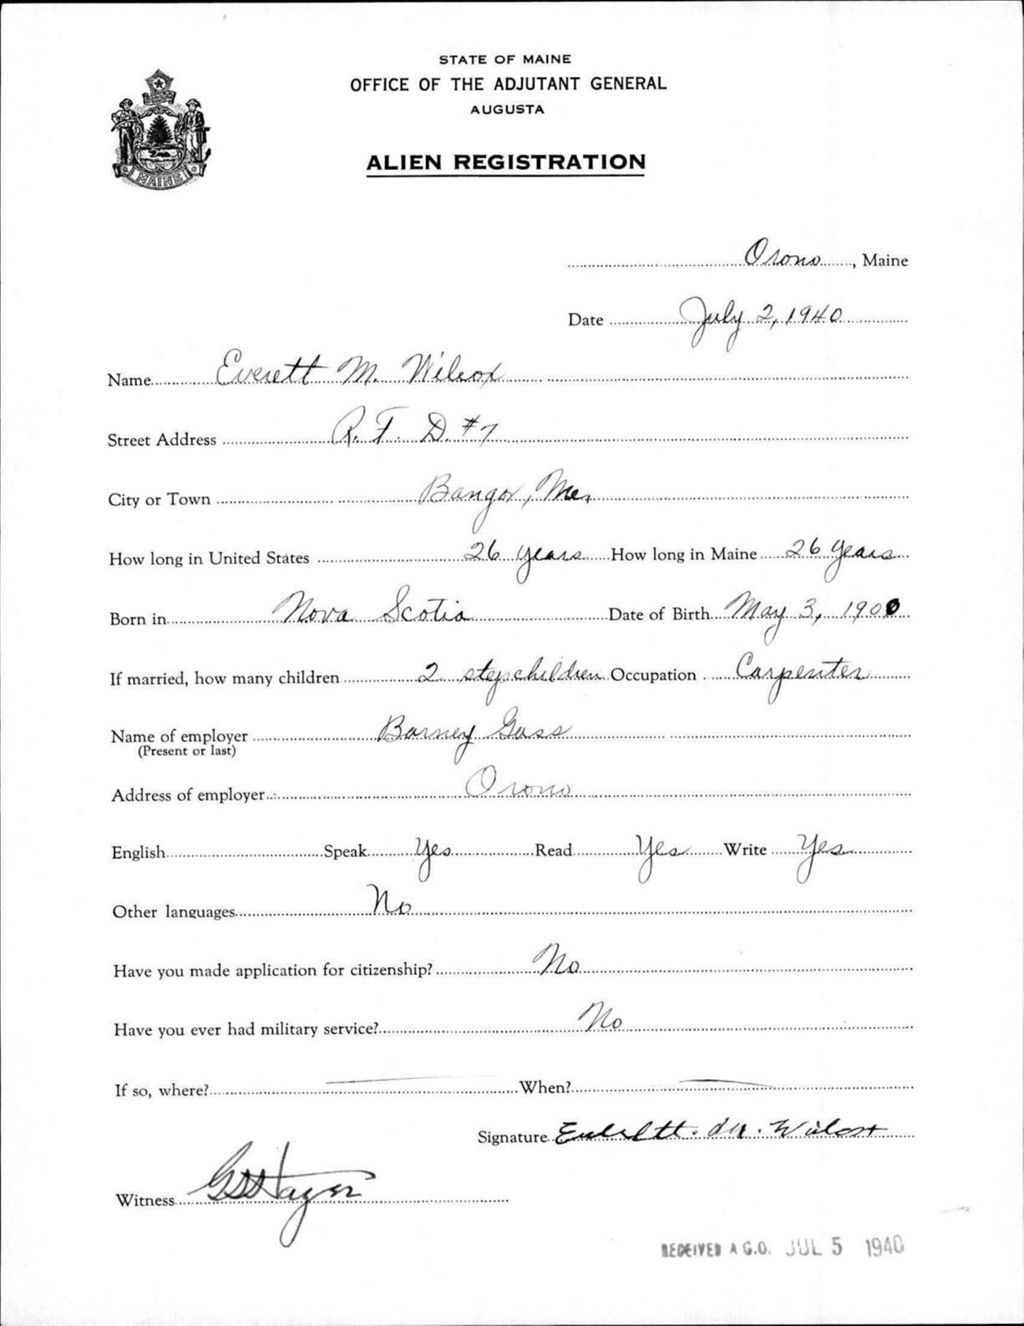 STATE OF MAINE
OFFICE OF THE ADJUTANT GENERAL
AUGUSTA
ALIEN REGISTRATION
MAINE
Orono, Maine
Date July 2, 1940
Name Everett M. Wilcox
Street Address R. F. D. #7
City or Town Bangor, Me.
How long in United States 26 years How long in Maine 26 years
Born in Nova Scotia Date of Birth May 3, 1900
If married, how many children 2 stepchildren Occupation Carpenter
Name of employer Barney Gass
(Present or last)
Address of employer Orono
English Speak Yes Read Yes Write Yes
Other languages No
Have you made application for citizenship? No
Have you ever had military service? No
If so, where? When?
Signature Everett. M. Wilcox
Witness
RECEIVED A.G.O. JUL 5 1940